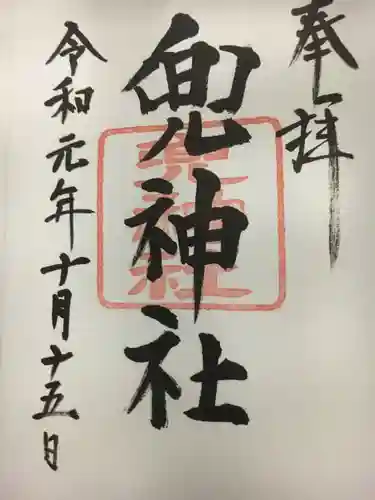 奉拝
兜神社
兜神社
令和元年十月十五日